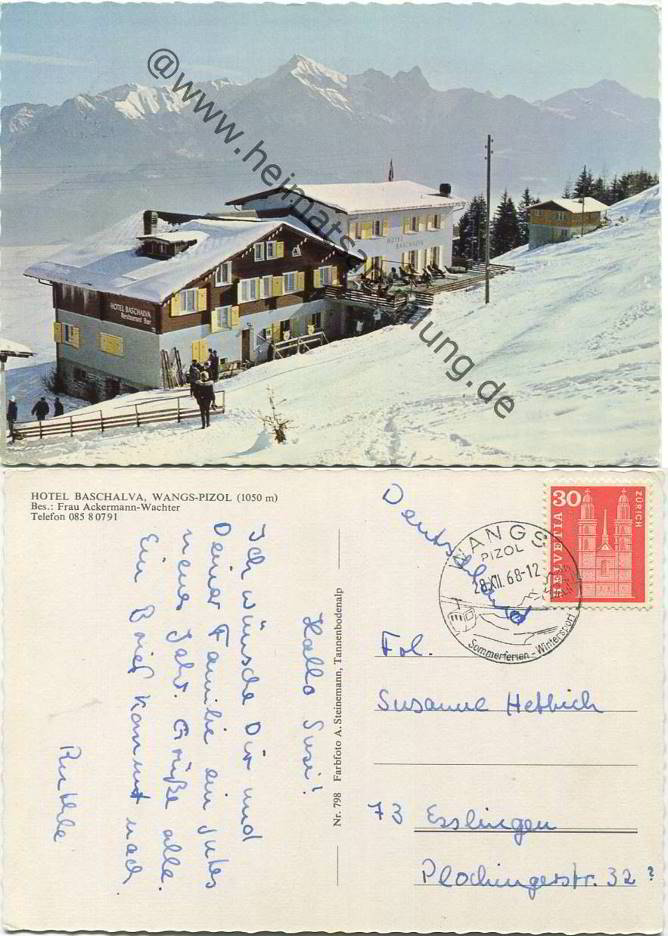 @www.heimatsammlung.de
HOTEL BASCHALVA
HOTEL BASCHALVA
Restaurant Bar
HOTEL BASCHALVA, WANGS-PIZOL (1050 m)
Bes.: Frau Ackermann-Wachter
Telefon 085 8 07 91
Hallo Susi!
Ich wünsche Dir und
Deiner Familie ein gutes
neues Jahr. Grüße alle.
Ein Brief kommt nach
Nr. 798 Farbfoto A. Steinemann, Tannenbodenalp
Deutschland
WANGS
PIZOL
28.XII.68-12
Sommerferien - Wintersport
30
HELVETIA
ZÜRICH
Frl.
Susanne Hettich
73 Esslingen
Plochingerstr. 32 ?